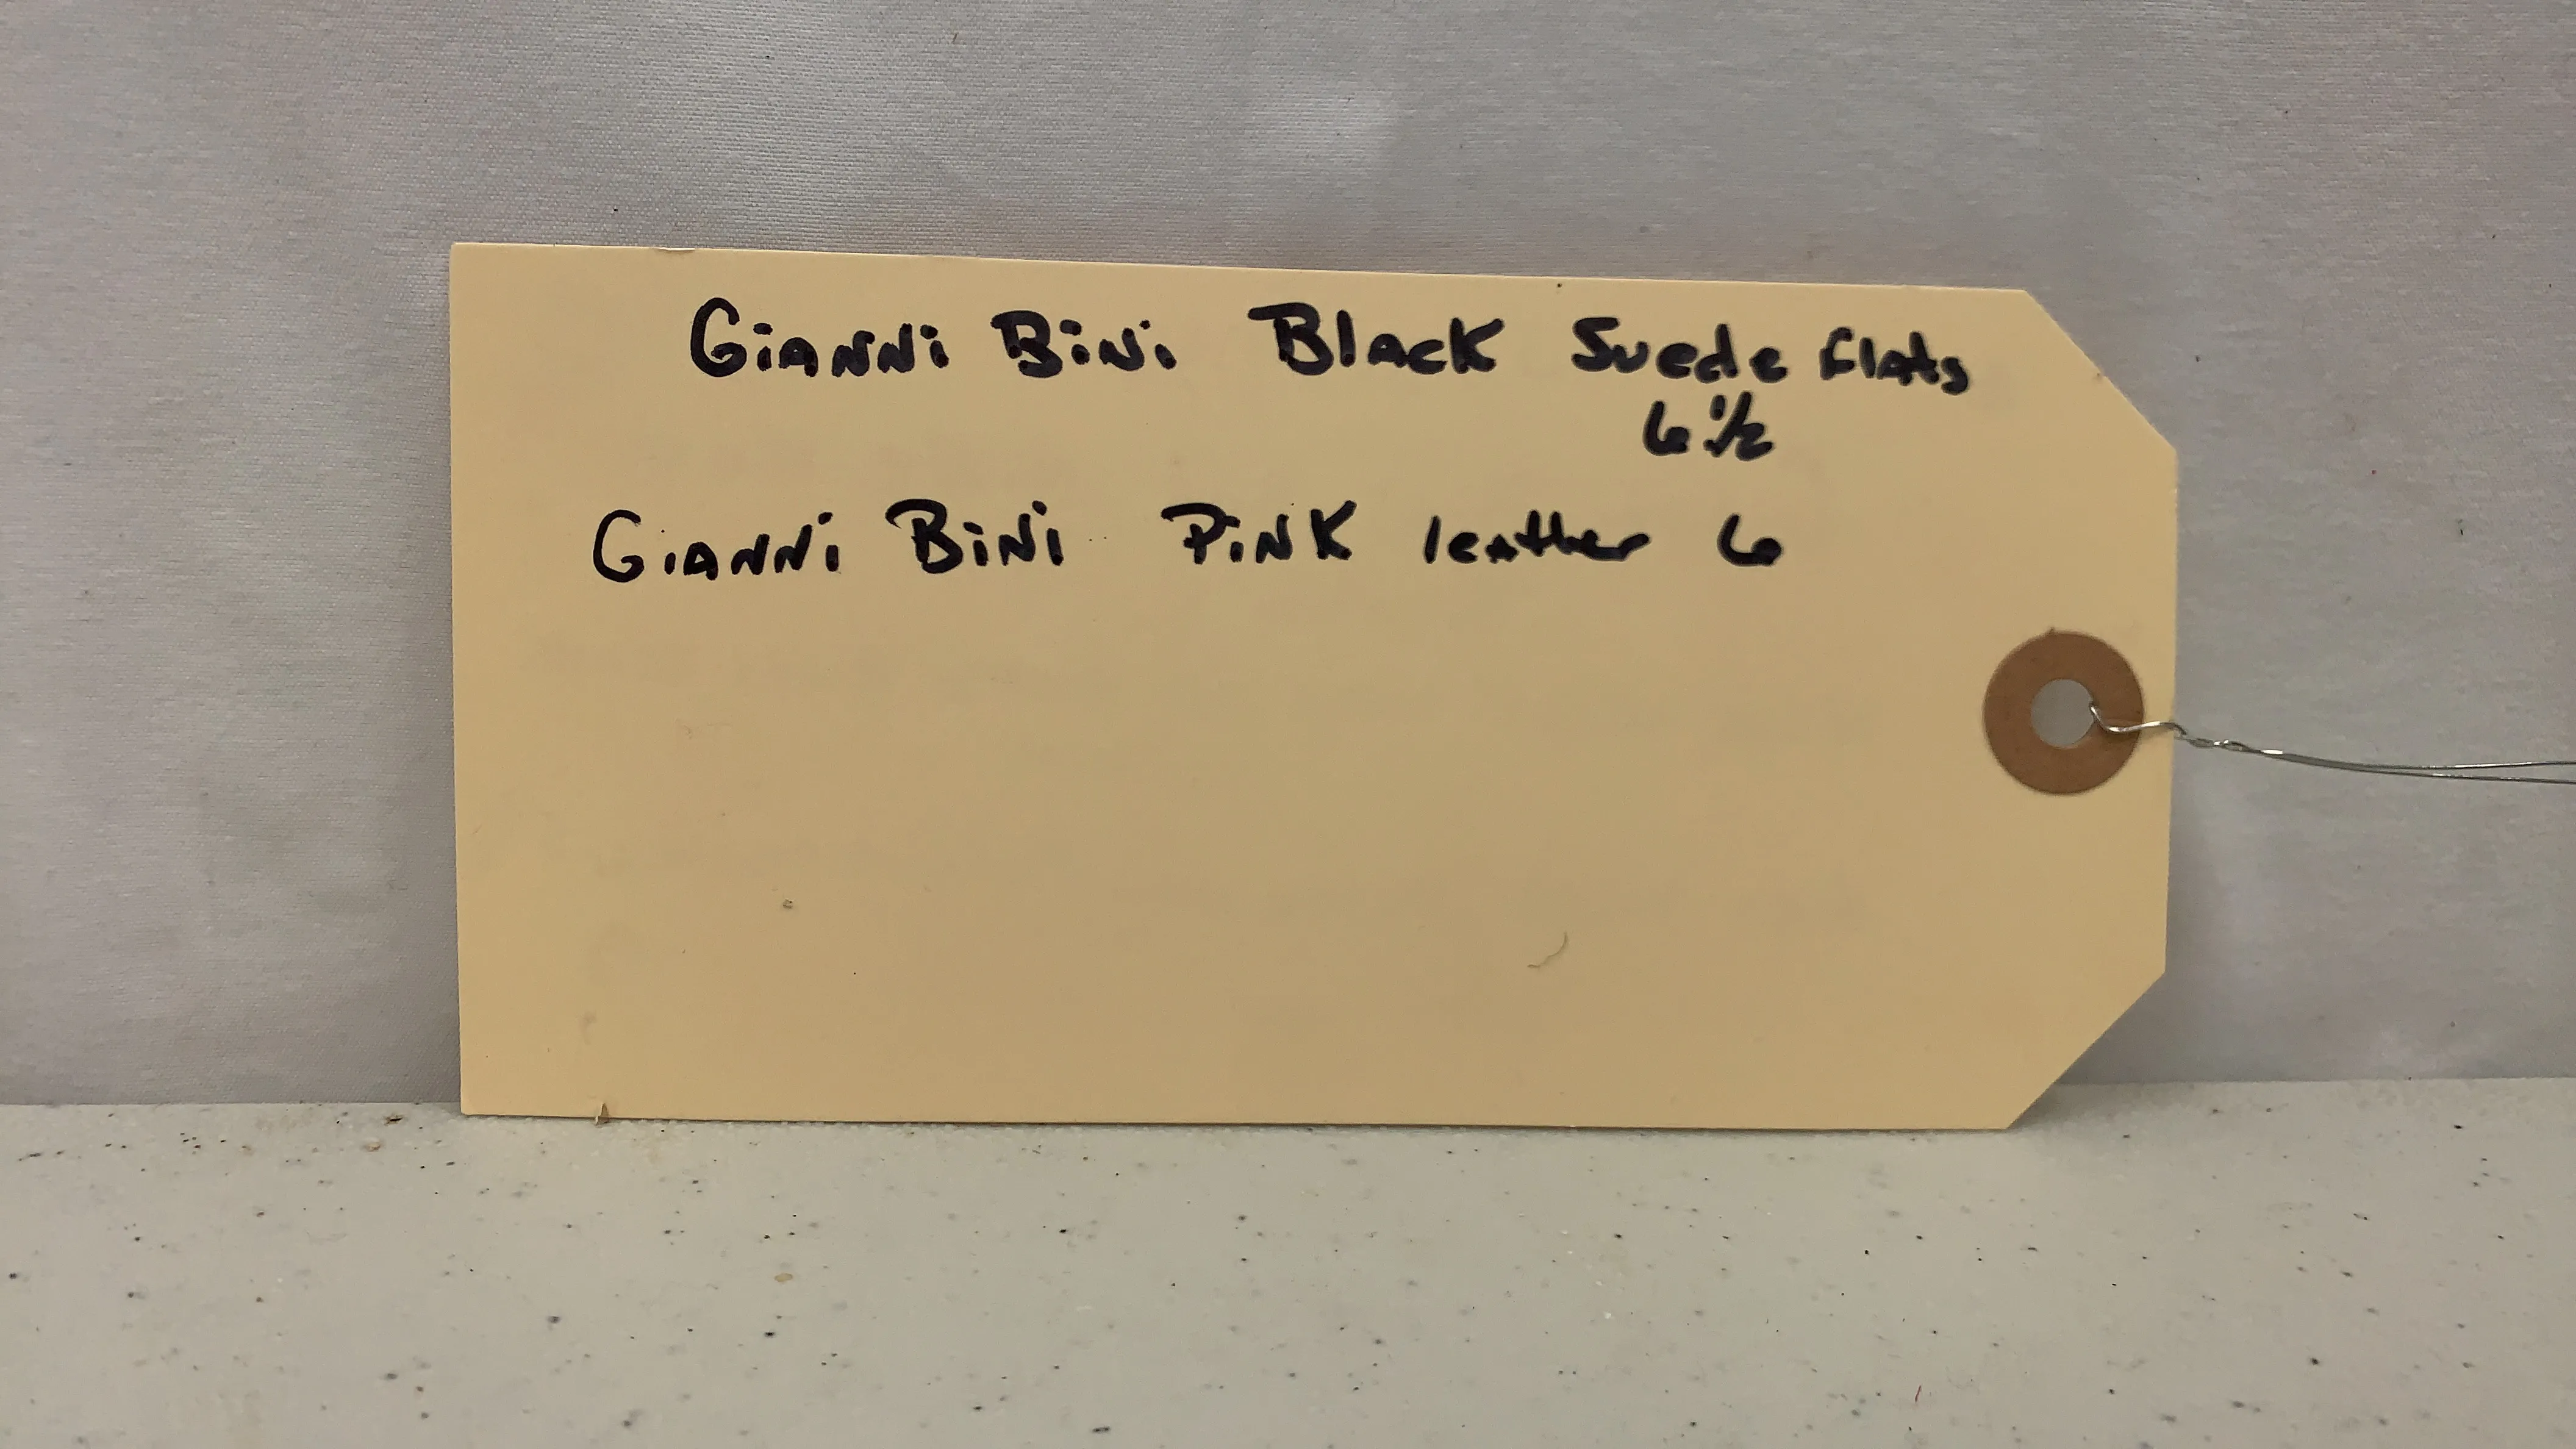 Gianni Bini Black Suede flats
6 1/2
Gianni Bini Pink leather 6